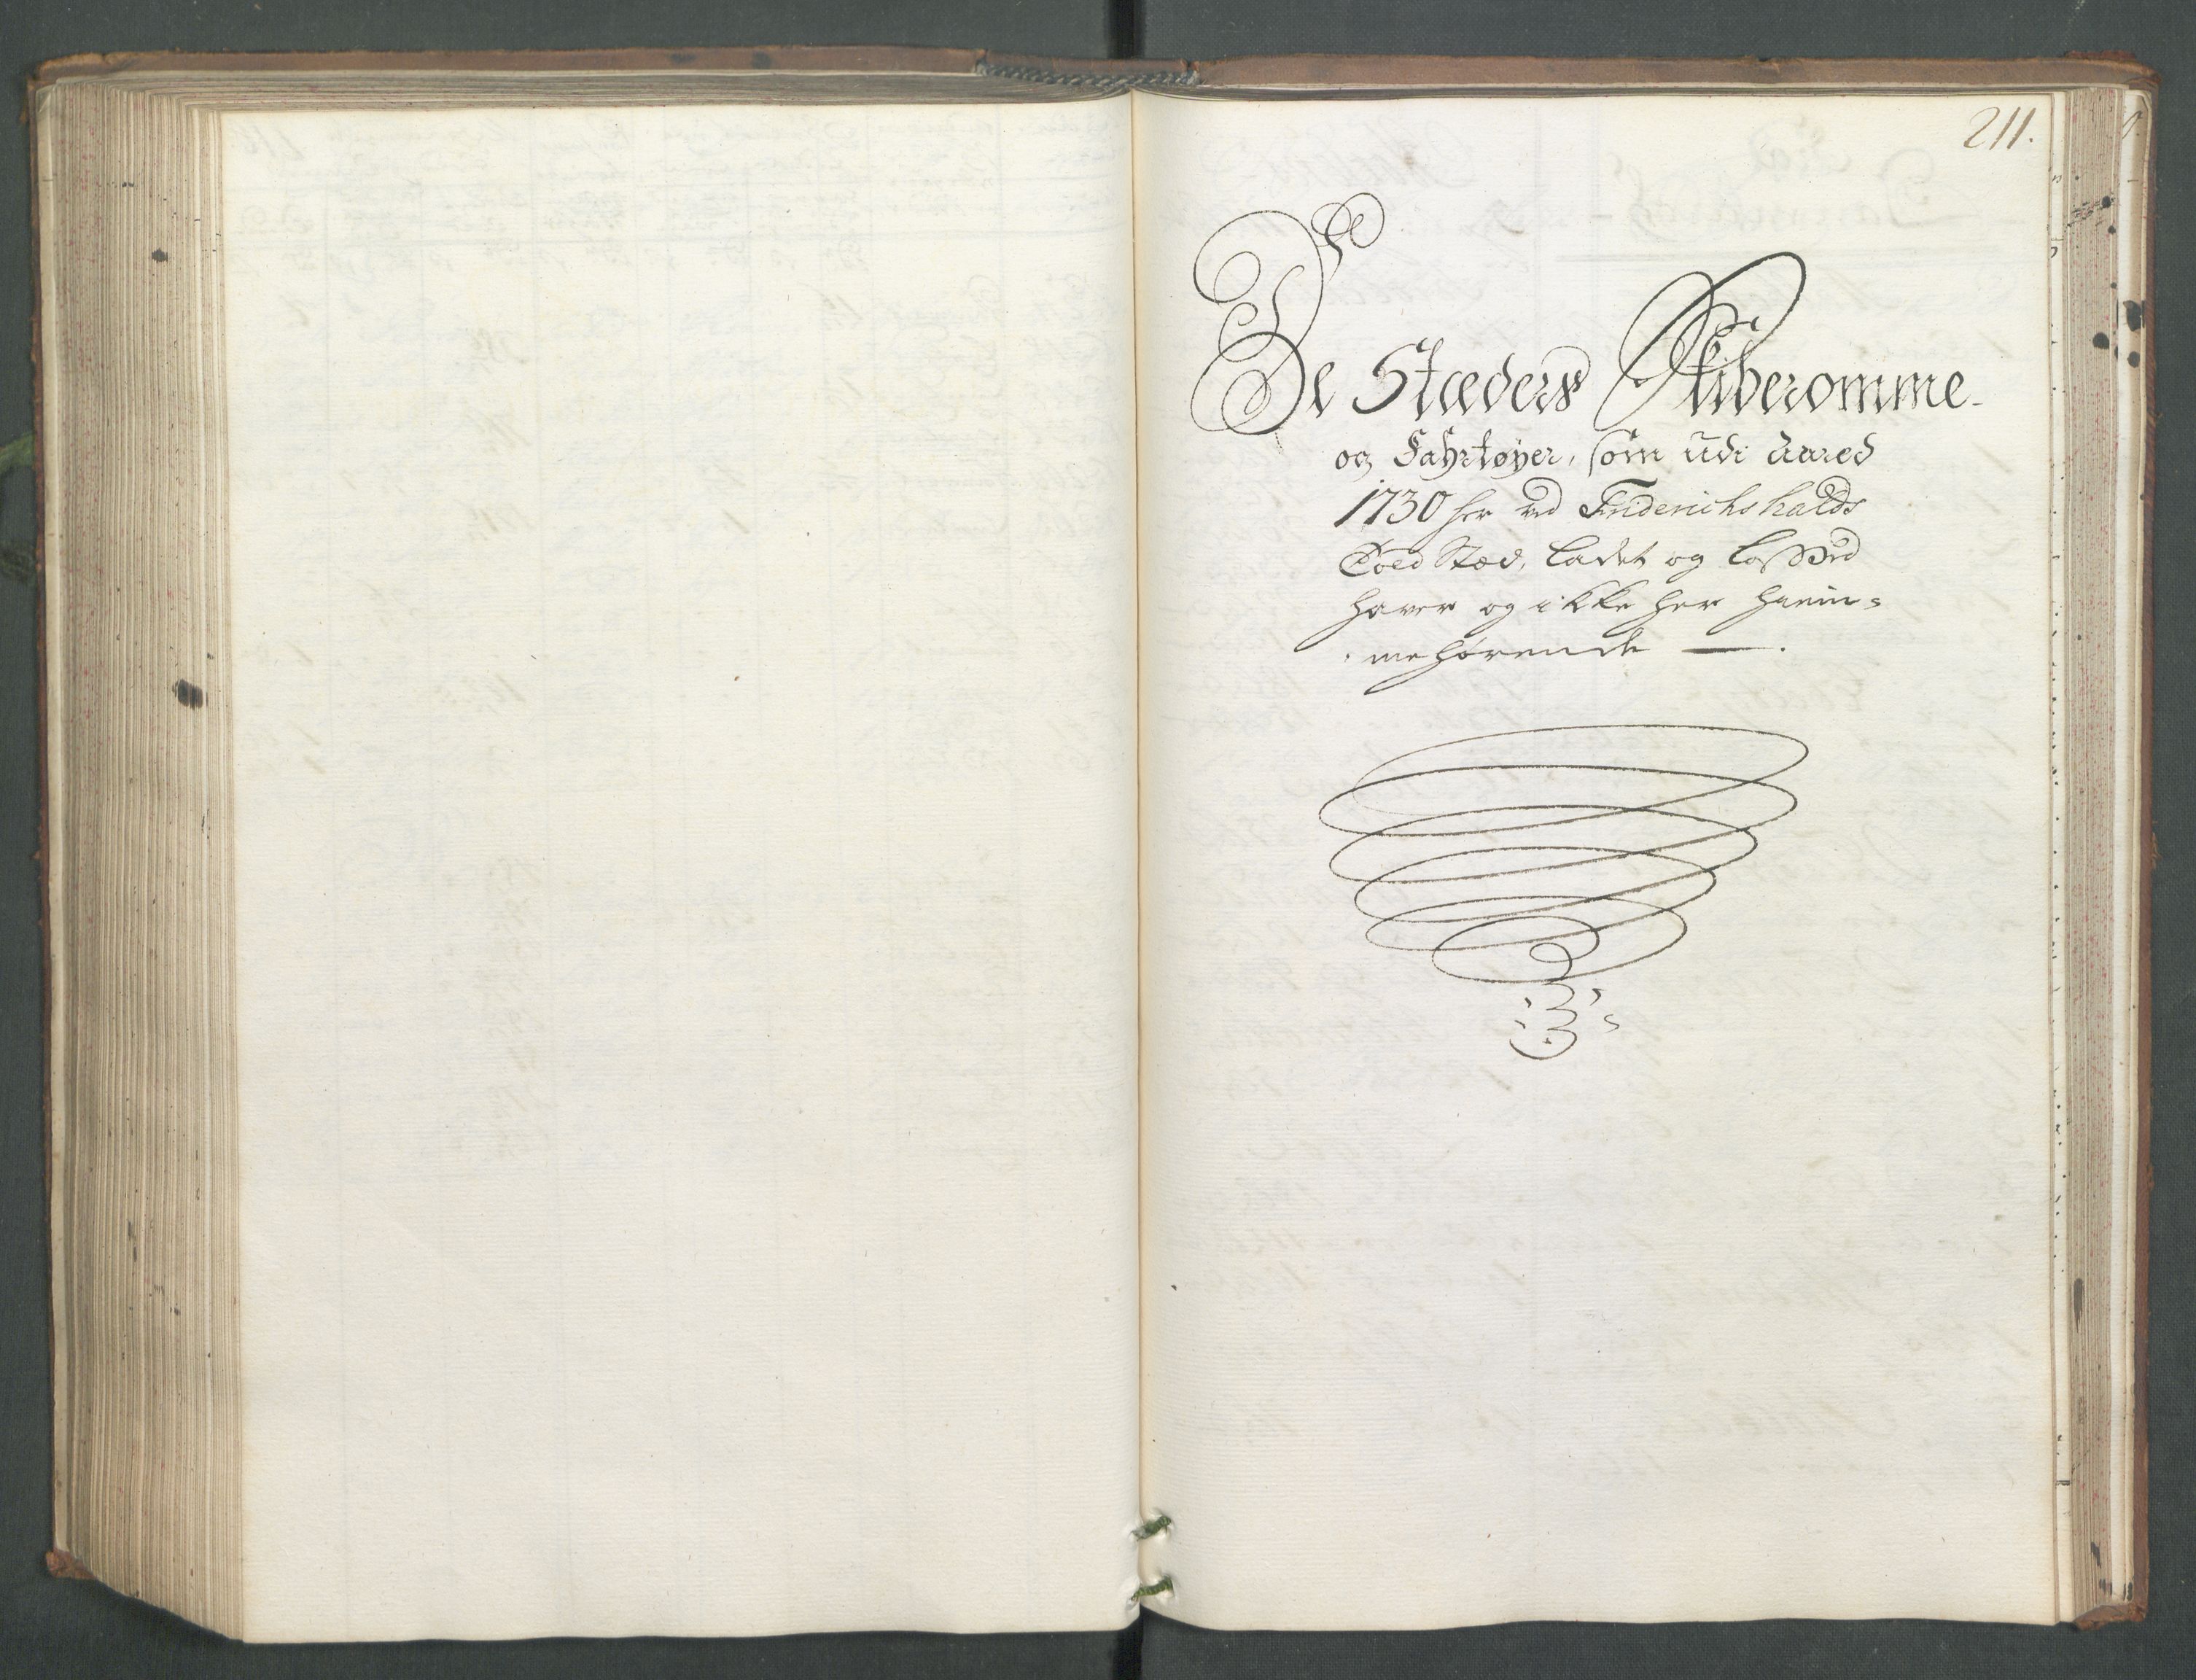 211.
De Stæders Skiberomme
og Fahrtøyer, som udi Aared
1730 her ved Friderichshalds
Told Stæd, ladet og losSed
haver og ikke her hiem=
mehørende —.